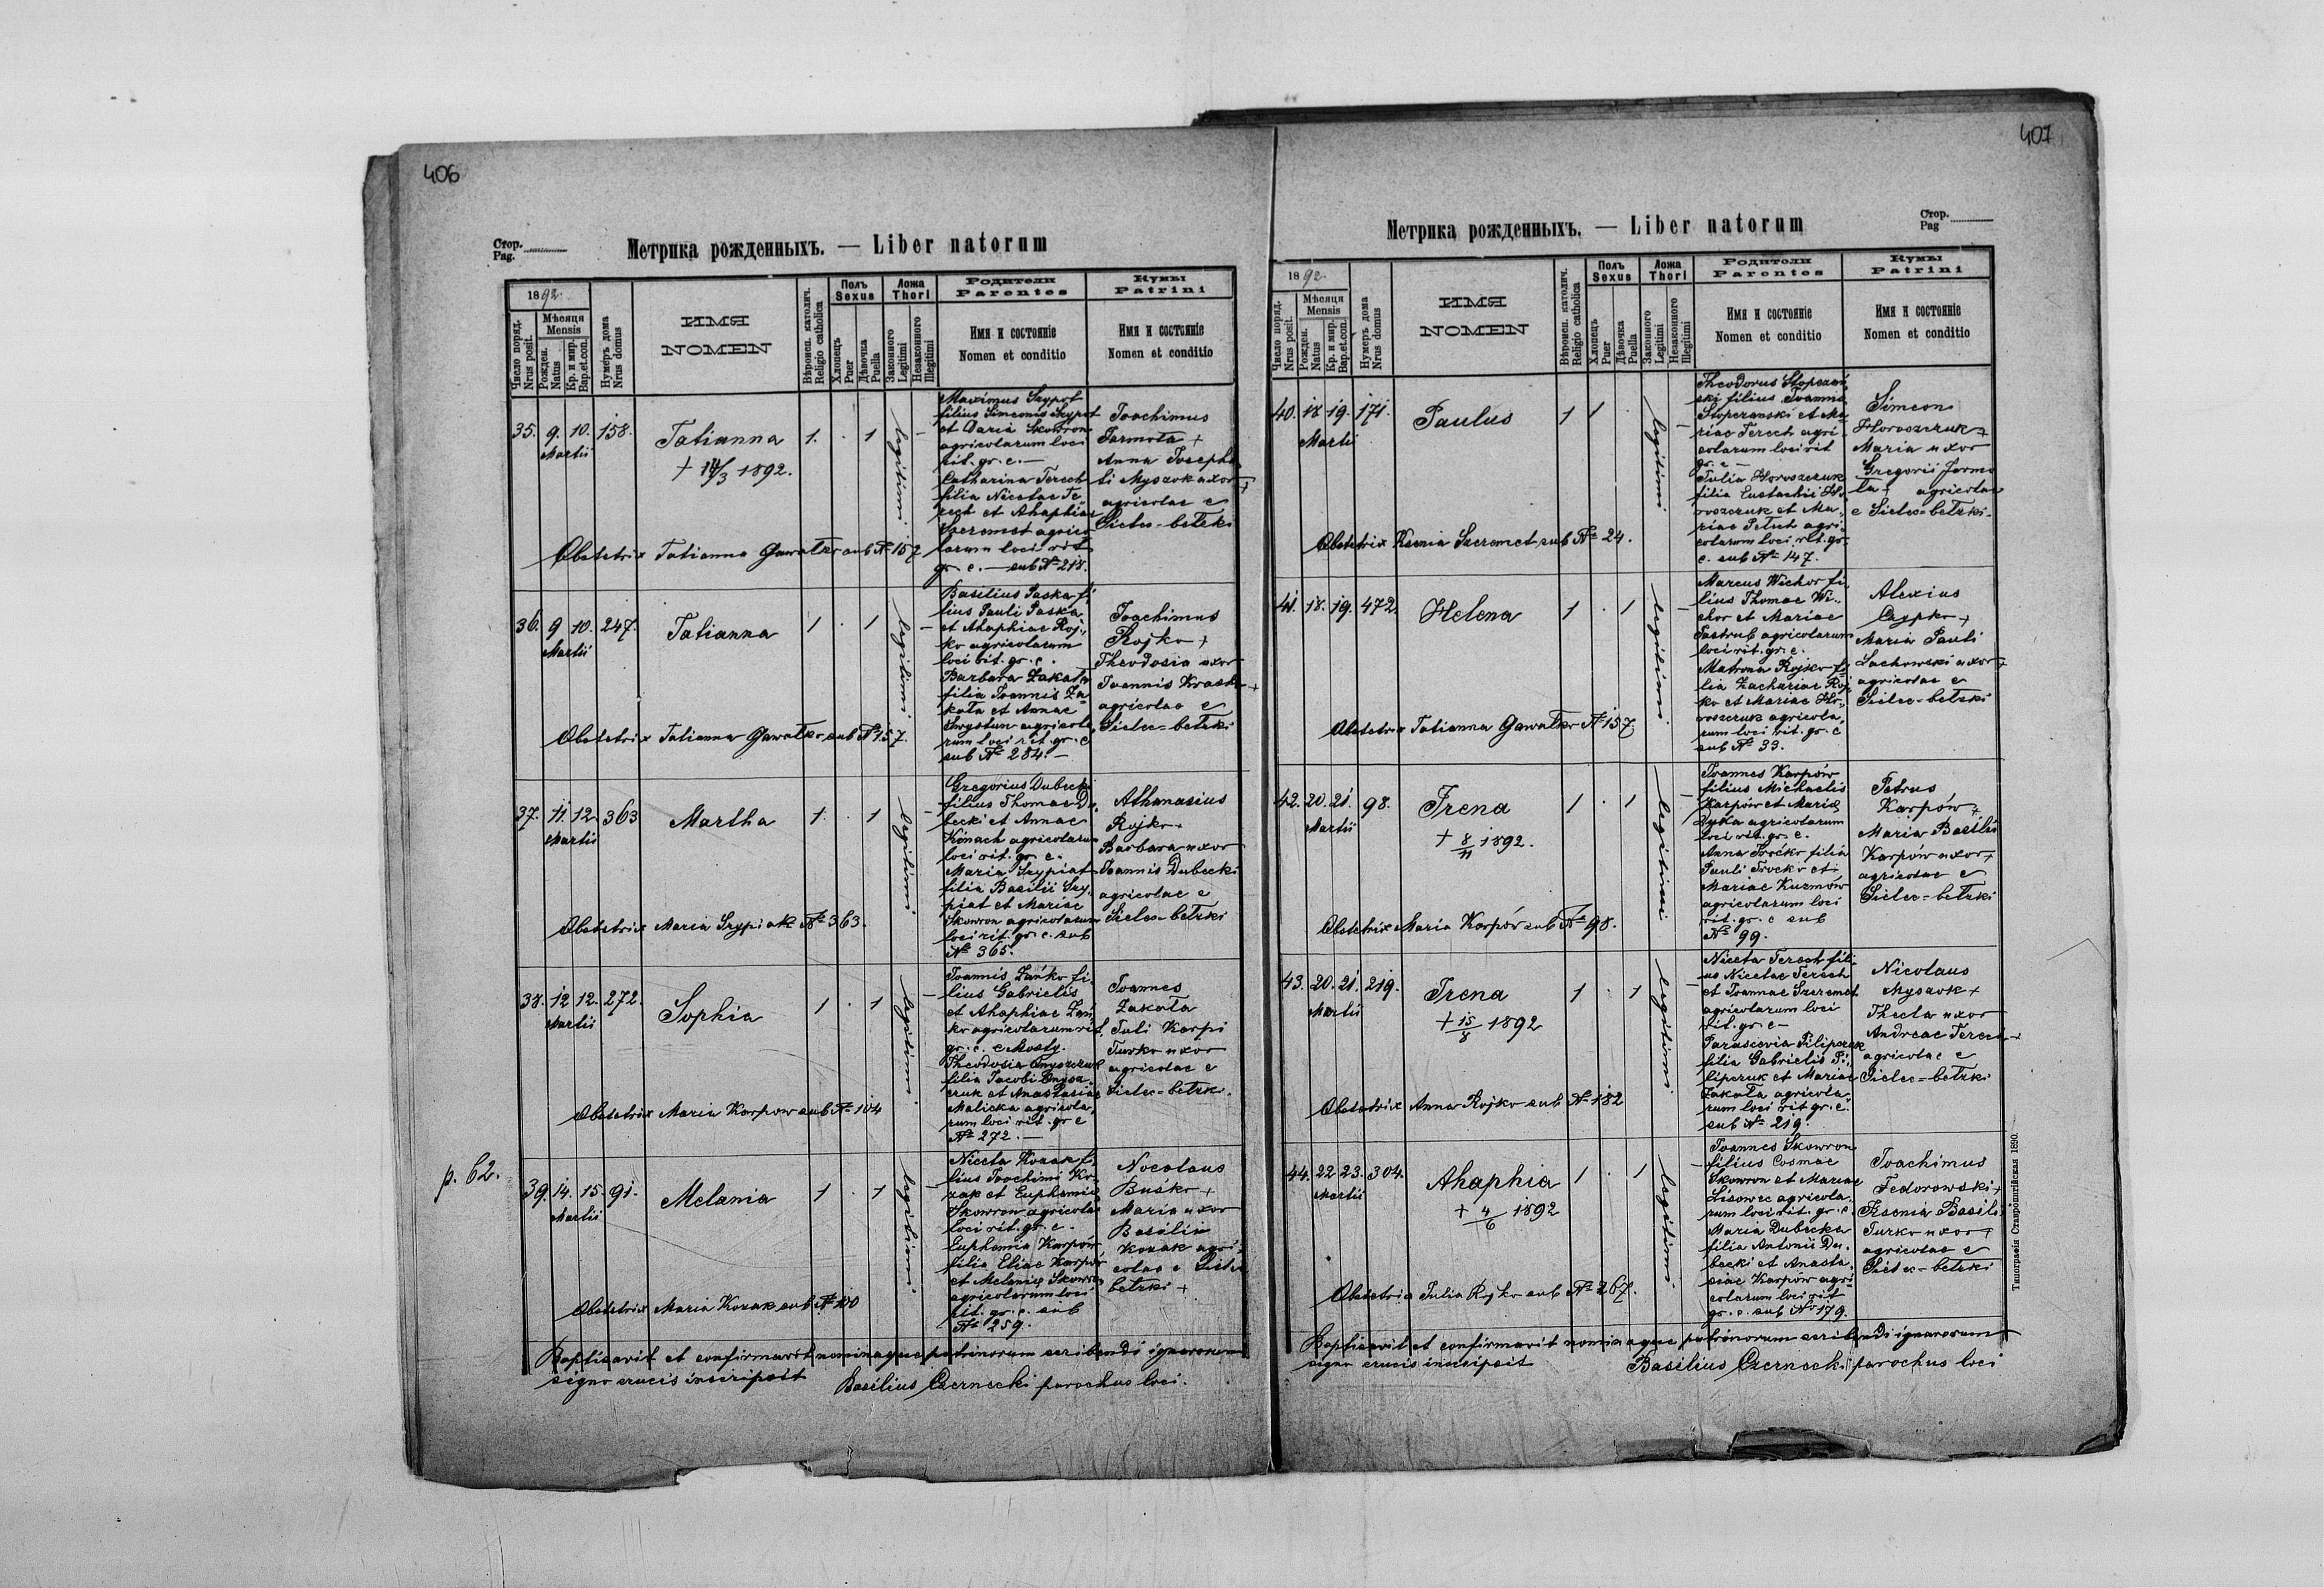 406
Стор.
Pag.
Метрика рожденныхъ. — Liber natorum
1892
Число поряд.
Nrus posit.
Мѣсяця
Mensis
Рожден.
Natus
Кр. и мир.
Bap.et.con.
Нумеръ дома
Nrus domus
ИМЯ
NOMEN
Вѣроиспов. католич.
Religio catholica
Полъ
Sexus
Хлопець
Puer
Дѣвочка
Puella
Ложа
Thori
Законного
Legitimi
Незаконного
Illegitimi
Родители
Parentes
Имя и состояніе
Nomen et conditio
Кумы
Patrini
Имя и состояніе
Nomen et conditio
35. 9. 10. 158. Tatianna 1. . 1 legitimi —
Martii
+ 14/3 1892.
Maximus Szypot
filius Simeonis Szypot
et Daria Skowron
agricolarum loci
rit. gr. c. —
Catharina Terech
filia Nicetae Te
rech et Ahaphiae
Szeremet agrico
larum loci rit
gr. c. — sub № 218.
Joachimus
Jarmoła +
Anna Josepha
ti Myszok uxor +
agricolae e
Sielec-bełzki
Obstetrix Tatianna Gawałko sub № 157
36. 9 10. 247. Tatianna 1 . 1 legitimi —
Martii
Basilius Paska fi
lius Pauli Paska
et Ahaphiae Roj„
ko agricolarum
loci rit. gr. c.
Barbara Zakała
filia Joannis Za
kała et Annae
agricola
rum loci rit. gr. c
sub № 284. —
Joachimus
Rojko +
Theodosia uxor
Joannis +
agricolae e
Sielec-bełzki
Obstetrix Tatianna Gawałko sub № 157.
37. 11. 12 363 Martha 1. . 1 legitimi —
Martii
Gregorius Dubecki
filius Thomae Du„
becki et Annae
Konach agricolarum
loci rit. gr. c.
Maria Szypiat
filia Basilii Szy„
piat et Mariae
Skowron agricolarum
loci rit. gr. c. sub
№ 365.
Athanasius
Rojko +
Barbara uxor
Joannis Dubecki
agricolae e
Sielec-bełzki
Obstetrix Maria Szypiak № 363.
38. 12 12. 272. Sophia 1 . 1 legitimi —
Martii
Joannis Zańko fi„
lius Gabrielis
et Ahaphiae Zań
ko agricolarum rit.
gr. c. e Mosty.
Theodosia Onyszczuk
filia Jacobi Onysz„
czuk et Anastasiae
Malicka agricola„
rum loci rit. gr c
№ 272. —
Joannes
Zakała
Juli Karpi
Turko uxor
agricolae e
Sielec-bełzki.
Obstetrix Maria Karpow sub № 104
p. 62.
39. 14. 15. 91. Melania 1 . 1 legitimi —
Martii
Niceta Kozak fi„
lius Joachimi Ko„
zak et Euphemiae
Skowron agricola
loci rit. gr. c.
Euphemia Karpów
filia Eliae Karpów
et Melaniae Skowron
agricolarum loci
rit. gr. c. sub
№ 259.
Nocolaus
Buśko +
Maria uxor
Basilii
Kozak agri„
colae e Sielec
bełzki +
Obstetrix Maria Kozak sub № 100
Baptisavit et confirmavit nominaque patrinorum scribendi ignarorum
signo crucis inscripsit Basilius Czernecki parochus loci.
407
Метрика рожденныхъ. — Liber natorum
Стор.
Pag
1892.
Число поряд.
Nrus posit.
Мѣсяця
Mensis
Рожден.
Natus
Кр. и мир.
Bap.et.con.
Нумеръ дома
Nrus domus
ИМЯ
NOMEN
Вѣроиспов. католич.
Religio catholica
Полъ
Sexus
Хлопець
Puer
Дѣвочка
Puella
Ложа
Thori
Законного
Legitimi
Незаконного
Illegitimi
Родители
Parentes
Имя и состояніе
Nomen et conditio
Кумы
Patrini
Имя и состояніе
Nomen et conditio
40. 18 19. 171. Paulus 1 1 . legitimi —
Martii
Theodorus Stopczań
ski filius Joannis
Stopczanski et Ma„
riae Terech agri„
colarum loci rit
gr. c —
Julia Horoszczuk
filia Eustachii Ho
roszczuk et Ma„
riae Petuch agri„
colarum loci rit. gr
c. sub № 147.
Simeon
Horoszczuk +
Maria uxor
Gregorii Jarmo
ła + agricolae
e Sielec-bełzki.
Obstetrix Ksenia Szeremet sub № 24.
41. 18. 19. 472. Helena 1 . 1 legitimi —
Marcus Wichor fi„
lius Thomae Wi„
chor et Mariae
Pastrub agricolarum
loci rit. gr. c.
Matrona Rojko fi„
lia Zachariae Roj„
ko et Mariae Ho„
roszczuk agricola„
rum loci rit. gr. c
sub № 33.
Alexius
Czypko +
Maria Pauli
Lachowski uxor +
agricolae e
Sielec-bełzki
Obstetrix Tatianna Gawałko № 157.
42. 20. 21. 98. Irena 1 . 1 legitimi —
Martii
+ 8/11 1892.
Joannes Karpów
filius Michaelis
Karpów et Mariae
Dyka agricolarum
loci rit. gr. c.
Anna Troćko filia
Pauli Troćko et
Mariae Kuzmów
agricolarum loci
rit. gr. c sub
№ 99.
Petrus
Karpów +
Maria Basilii
Karpów uxor +
agricolae e
Sielec-bełzki
Obstetrix Maria Karpów sub № 98.
43. 20. 21. 219. Irena 1 . 1 legitimi —
Martii
+ 15/8 1892
Niceta Terech fili„
us Nicetae Terech
et Joannae Szeremet
agricolarum loci
rit. gr. c —
Parascevia Pilipczuk
filia Gabrielis Pi„
lipczuk et Mariae
Zakała agricola„
rum loci rit gr. c.
sub № 219.
Nicolaus
Myszok +
Thecla uxor
Andreae Terech +
agricolae e
Sielec-bełzki
Obstetrix Anna Rojko sub № 182
44. 22. 23. 304. Ahaphia 1 . 1 legitimi —
Martii
+ 4/6 1892
Joannes Skowron
filius Cosmae
Skowron et Mariae
Lisowec agricola„
rum loci rit. gr. c.
Maria Dubecka
filia Antonii Du„
becki et Anasta„
siae Karpów agri„
colarum loci rit
gr. c. sub № 179.
Joachimus
Fedorowski +
Ksenia Basilii
Turko uxor +
agricolae e
Sielec-bełzki
Obstetrix Julia Rojko sub № 267.
Baptisavit et confirmavit nominaque patrinorum scribendi ignarorum
signo crucis inscripsit Basilius Czernecki parochus loci
Типографія Ставропигійская 1890.